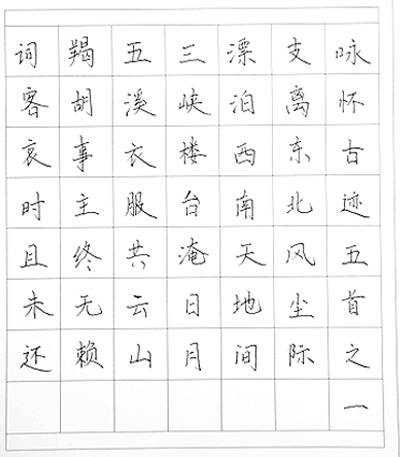 咏怀古迹五首之一
支离东北风尘际
漂泊西南天地间
三峡楼台淹日月
五溪衣服共云山
羯胡事主终无赖
词客哀时且未还